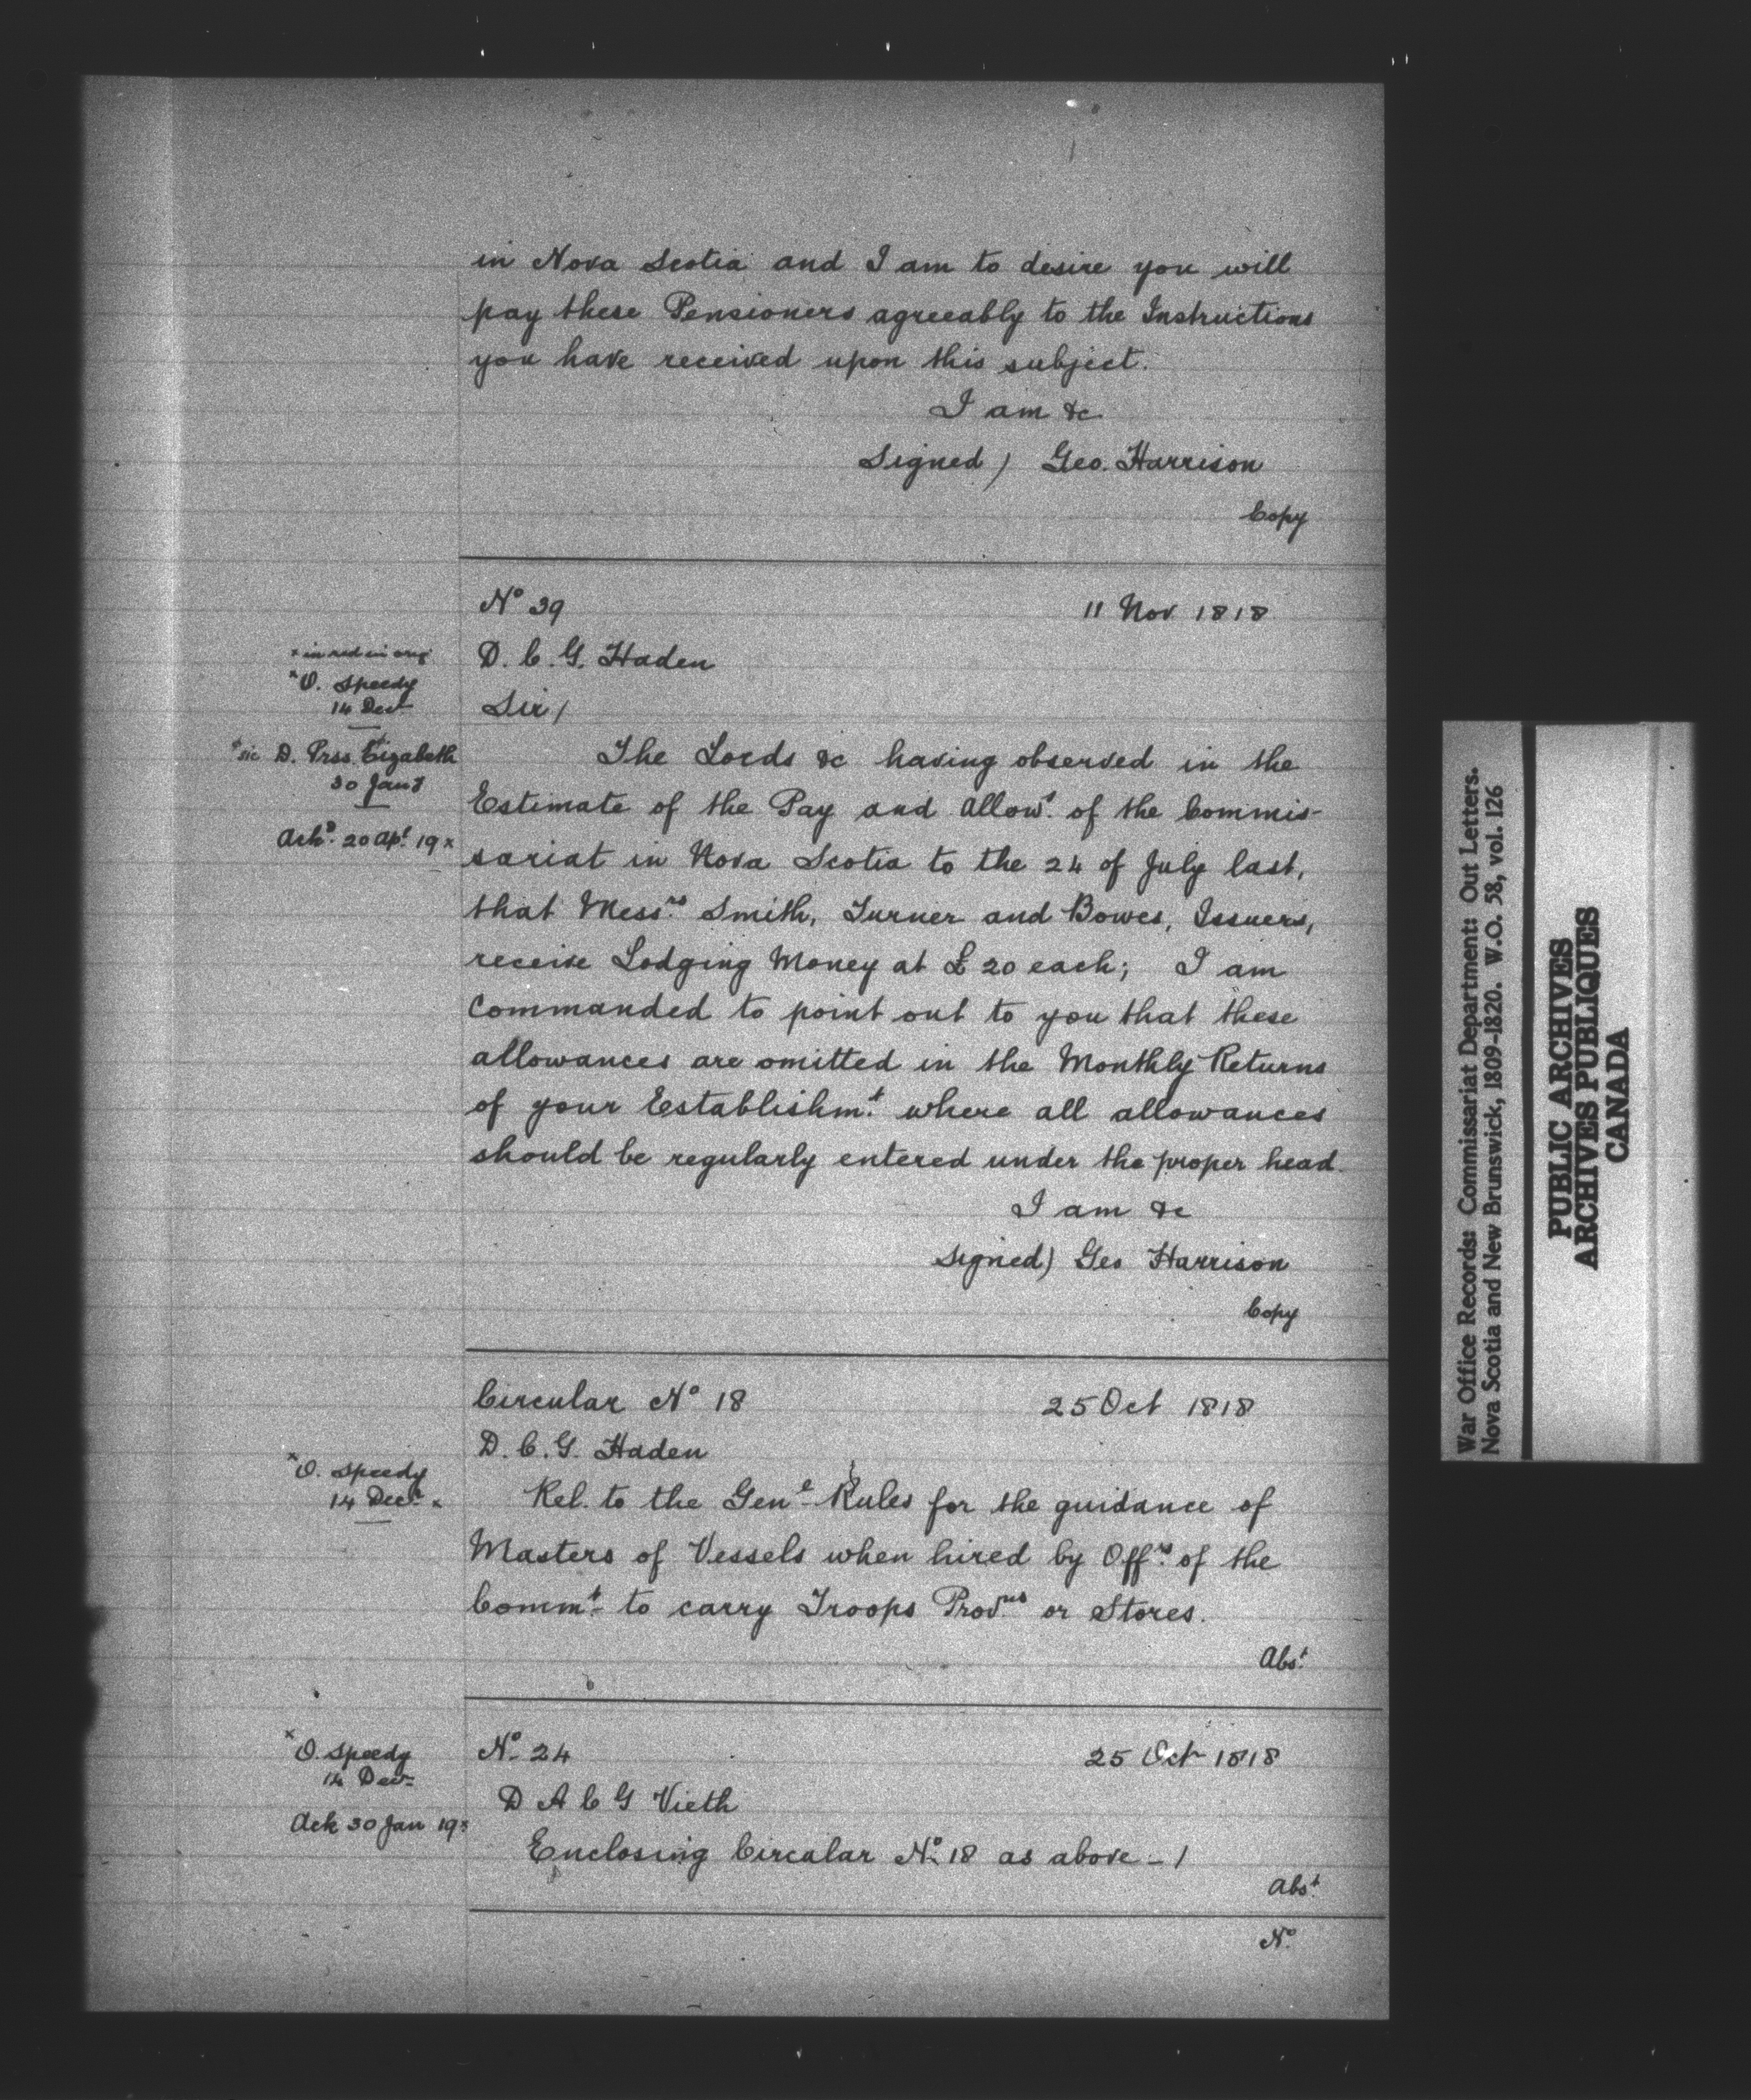 in Nova Scotia and I am to desire you will
pay these Pensioners agreeably to the Instructions
you have received upon this subject.
I am &c
Signed) Geo. Harrison
Copy
No 39
11 Nov 1818
* in red in orig
D. C. G. Haden
*O. Speedy
14 Decr
Sir/
*sic D. Prss Eizabeth
30 Jany
Ackd. 20 Apl. 19 x
The Lords &c having observed in the
Estimate of the Pay and Allowt. of the Commis-
sariat in Nova Scotia to the 24 of July last,
that Messrs. Smith, Turner and Bowes, Issuers,
receive Lodging Money at £20 each; I am
Commanded to point out to you that these
allowances are omitted in the Monthly Returns
of your Establishmt. where all allowances
should be regularly entered under the proper head.
I am &c
Signed) Geo Harrison
Copy
Circular No 18
25 Oct 1818
D. C. G. Haden
*O. Speedy
14 Decr x
Rel. to the Genl Rules for the guidance of
Masters of Vessels when hired by Offrs. of the
Commt. to carry Troops Provns or Stores.
Abst.
*O. Speedy
14 Decr
Ack 30 Jan 19x
No. 24
25 Oct 1818
D A C G Vieth
Enclosing Circular No. 18 as above - /
Abst.
No.
War Office Records: Commissariat Department: Out Letters.
Nova Scotia and New Brunswick, 1809-1820. W.O. 58, vol. 126
PUBLIC ARCHIVES
ARCHIVES PUBLIQUES
CANADA